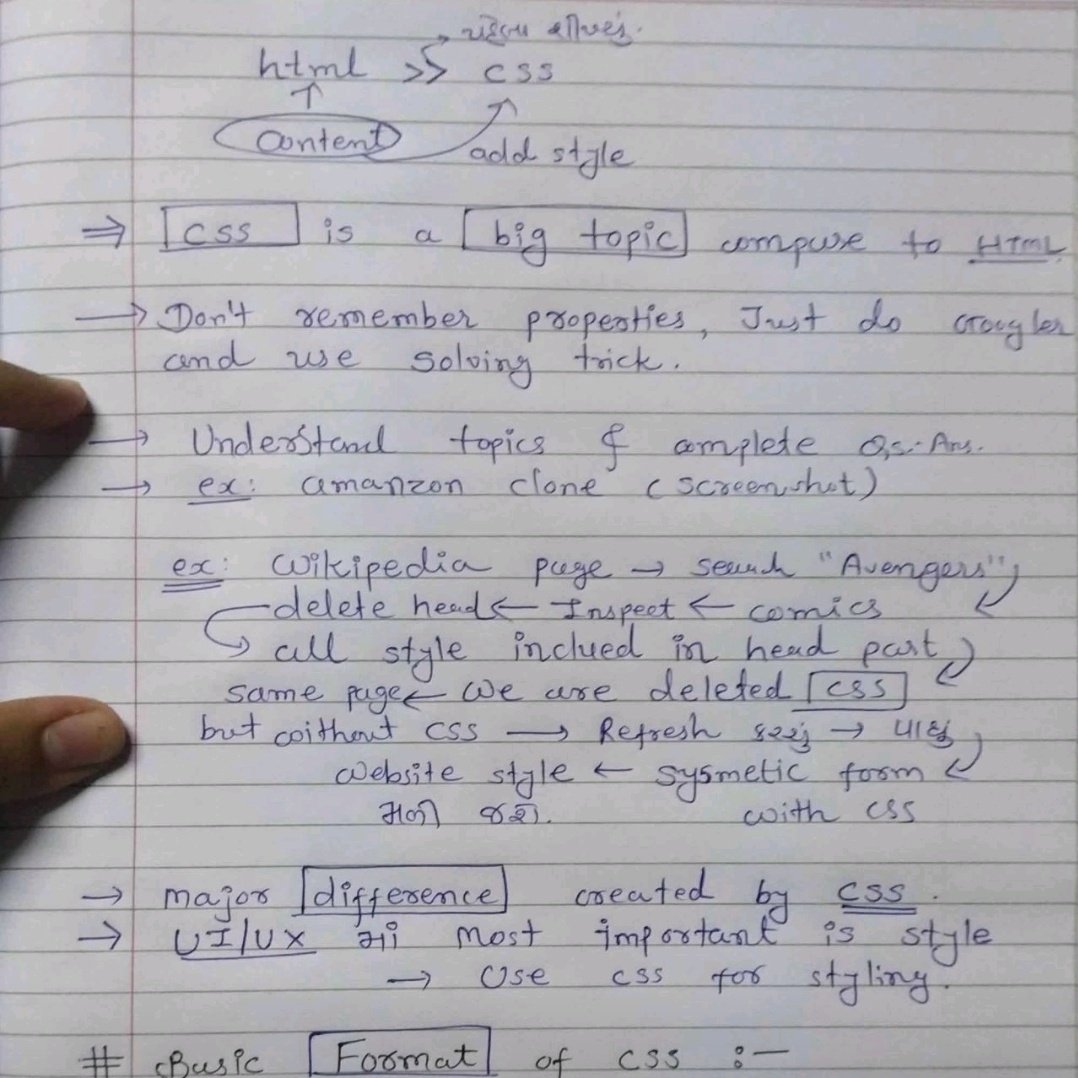 પહેલા શીખશું.
html >> css
content
add style
⇒ css is a big topic compare to HTML.
→ Don't remember properties, Just do Googler
and use solving trick.
→ Understand topics & complete Qs.-Ans.
→ ex: amanzon clone (screenshot)
ex: wikipedia page → search "Avengers"
delete head ← Inspect ← comics
all style inclued in head part
same page ← we are deleted css
but without css → Refresh કરશું → પાછું
website style ← sysmetic form
મળી જશે. with css
→ major difference created by css.
→ UI/UX માં most important is style
→ Use css for styling.
# Basic Format of css :-